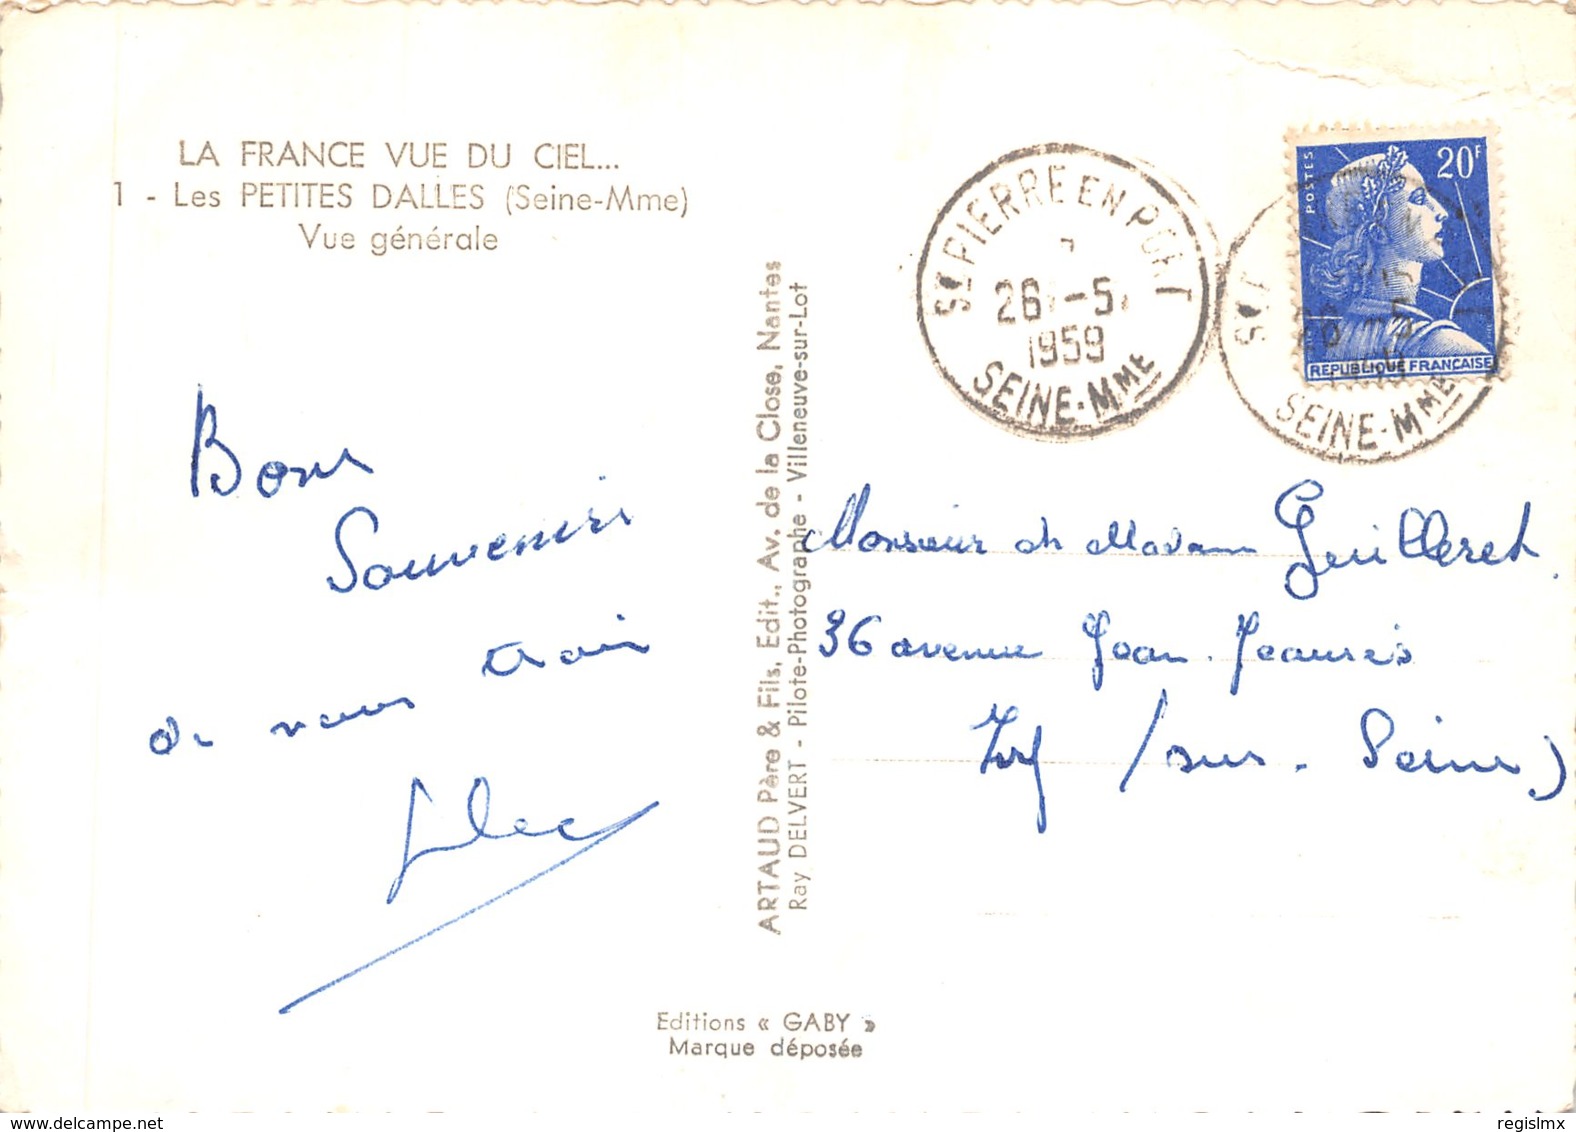 LA FRANCE VUE DU CIEL...
1 - Les PETITES DALLES (Seine-Mme)
Vue générale
Bons
Souvenirs
de nous trois
ARTAUD Père & Fils, Edit., Av. de la Close, Nantes
Ray DELVERT - Pilote-Photographe - Villeneuve-sur-Lot
Editions « GABY »
Marque déposée
ST PIERRE EN PORT
26 -5
1959
SEINE-MME
POSTES
20F
REPUBLIQUE FRANÇAISE
SEINE-MME
Monsieur et Madame Guilleret
36 avenue Jean Jeaurès
/sur-Seine)
regislmx